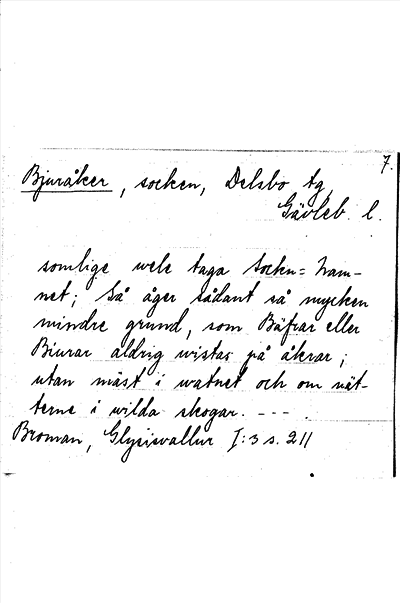 7.
Bjuråker, socken, Delsbo tg,
Gävleb l.
somlige wele taga Sockn= Nam-
net; Så äger sådant så mycken
mindre grund, som Bäfrar eller
Biurar aldrig wistas på åkrar;
utan mäst i watnet och om nät-
terne i wilda skogar. ---
Broman, Glysisvallur I:3 s. 211